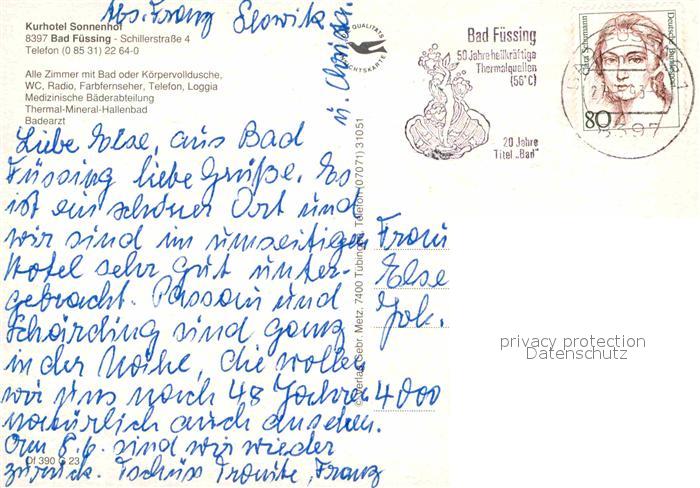 Abs. Franz Slowik
u. Christa.
Kurhotel Sonnenhof
8397 Bad Füssing - Schillerstraße 4
Telefon (0 85 31) 22 64-0
Alle Zimmer mit Bad oder Körpervolldusche,
WC, Radio, Farbfernseher, Telefon, Loggia
Medizinische Bäderabteilung
Thermal-Mineral-Hallenbad
Badearzt
Liebe Else, aus Bad
Füssing liebe Grüße. Es
ist ein schöner Ort und
wir sind im umseitigen
Hotel sehr gut unter-
gebracht. Passau und
Schärding sind ganz
in der Nähe, die wollen
wir uns nach 48 Jahren
natürlich auch ansehen.
Am 8.6. sind wir wieder
zurück. Tschüss Franz
Df 390 C 23
© Verlag Gebr. Metz, 7400 Tübingen, Telefon (07071) 31051
QUALITÄTS
Bad Füssing
50 Jahre heilkräftige
Thermalquellen
(56°C)
20 Jahre
Titel „Bad"
Clara Schumann
Deutsche Bundespost
80
8397
Frau
Else
Joh.
4000
privacy protection
Datenschutz